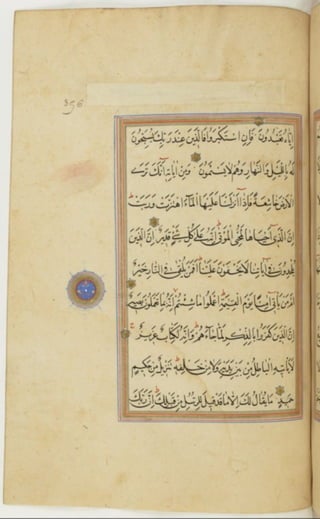 356
اِيَّاهُ تَعْبُدُونَ فَاِنِ اسْتَكْبَرُوا فَالَّذِينَ عِنْدَ رَبِّكَ يُسَبِّحُونَ
لَهُ بِالَّيْلِ وَالنَّهَارِ وَهُمْ لَا يَسْئَمُونَ وَمِنْ اٰيَاتِهِ اَنَّكَ تَرَى
الْاَرْضَ خَاشِعَةً فَاِذَا اَنْزَلْنَا عَلَيْهَا الْمَاءَ اهْتَزَّتْ وَرَبَتْ
اِنَّ الَّذِي اَحْيَاهَا لَمُحْيِ الْمَوْتٰى اِنَّهُ عَلٰى كُلِّ شَيْءٍ قَدِيرٌ اِنَّ الَّذِينَ
يُلْحِدُونَ فِي اٰيَاتِنَا لَا يَخْفَوْنَ عَلَيْنَا اَفَمَنْ يُلْقٰى فِي النَّارِ خَيْرٌ
اَمْ مَنْ يَأْتِي اٰمِنًا يَوْمَ الْقِيٰمَةِ اعْمَلُوا مَا شِئْتُمْ اِنَّهُ بِمَا تَعْمَلُونَ بَصِيرٌ
اِنَّ الَّذِينَ كَفَرُوا بِالذِّكْرِ لَمَّا جَاءَهُمْ وَاِنَّهُ لَكِتَابٌ عَزِيزٌ
لَا يَأْتِيهِ الْبَاطِلُ مِنْ بَيْنِ يَدَيْهِ وَلَا مِنْ خَلْفِهِ تَنْزِيلٌ مِنْ حَكِيمٍ
حَمِيدٍ مَا يُقَالُ لَكَ اِلَّا مَا قَدْ قِيلَ لِلرُّسُلِ مِنْ قَبْلِكَ اِنَّ رَبَّكَ